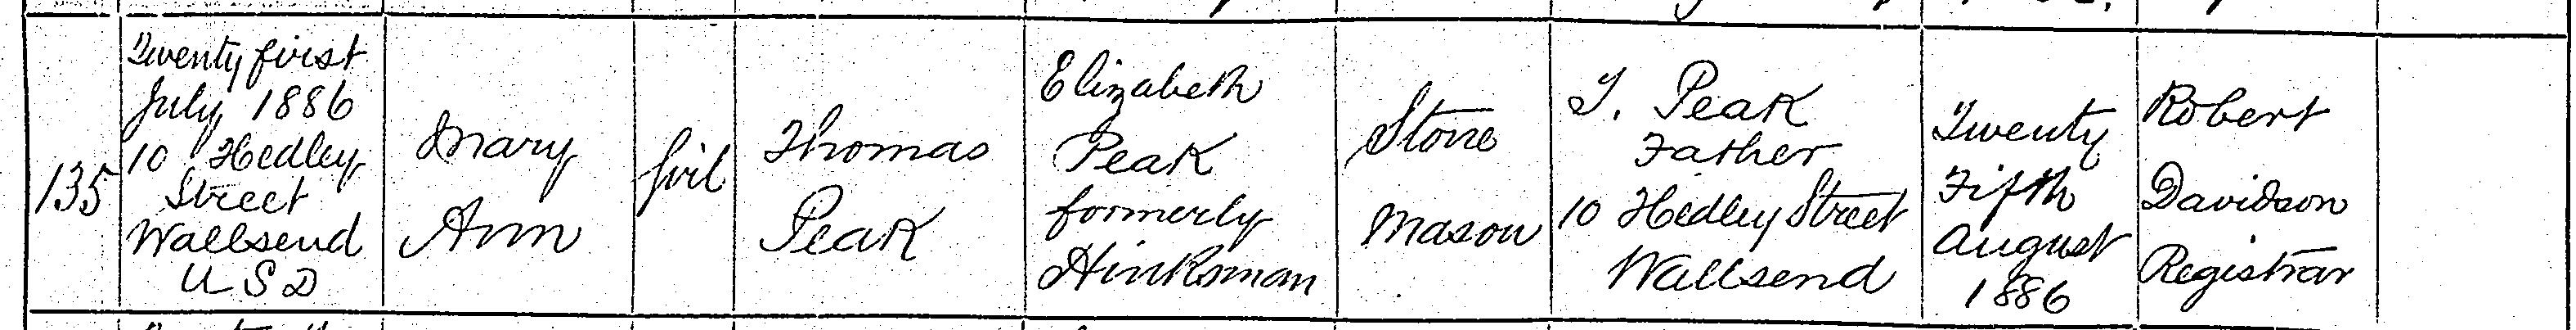 135
Twenty first
July 1886
10 Hedley
Street
Wallsend
U S D
Mary
Ann
Girl
Thomas
Peak
Elizabeth
Peak
formerly
Hinksman
Stone
Mason
T. Peak
Father
10 Hedley Street
Wallsend
Twenty
Fifth
August
1886
Robert
Davidson
Registrar